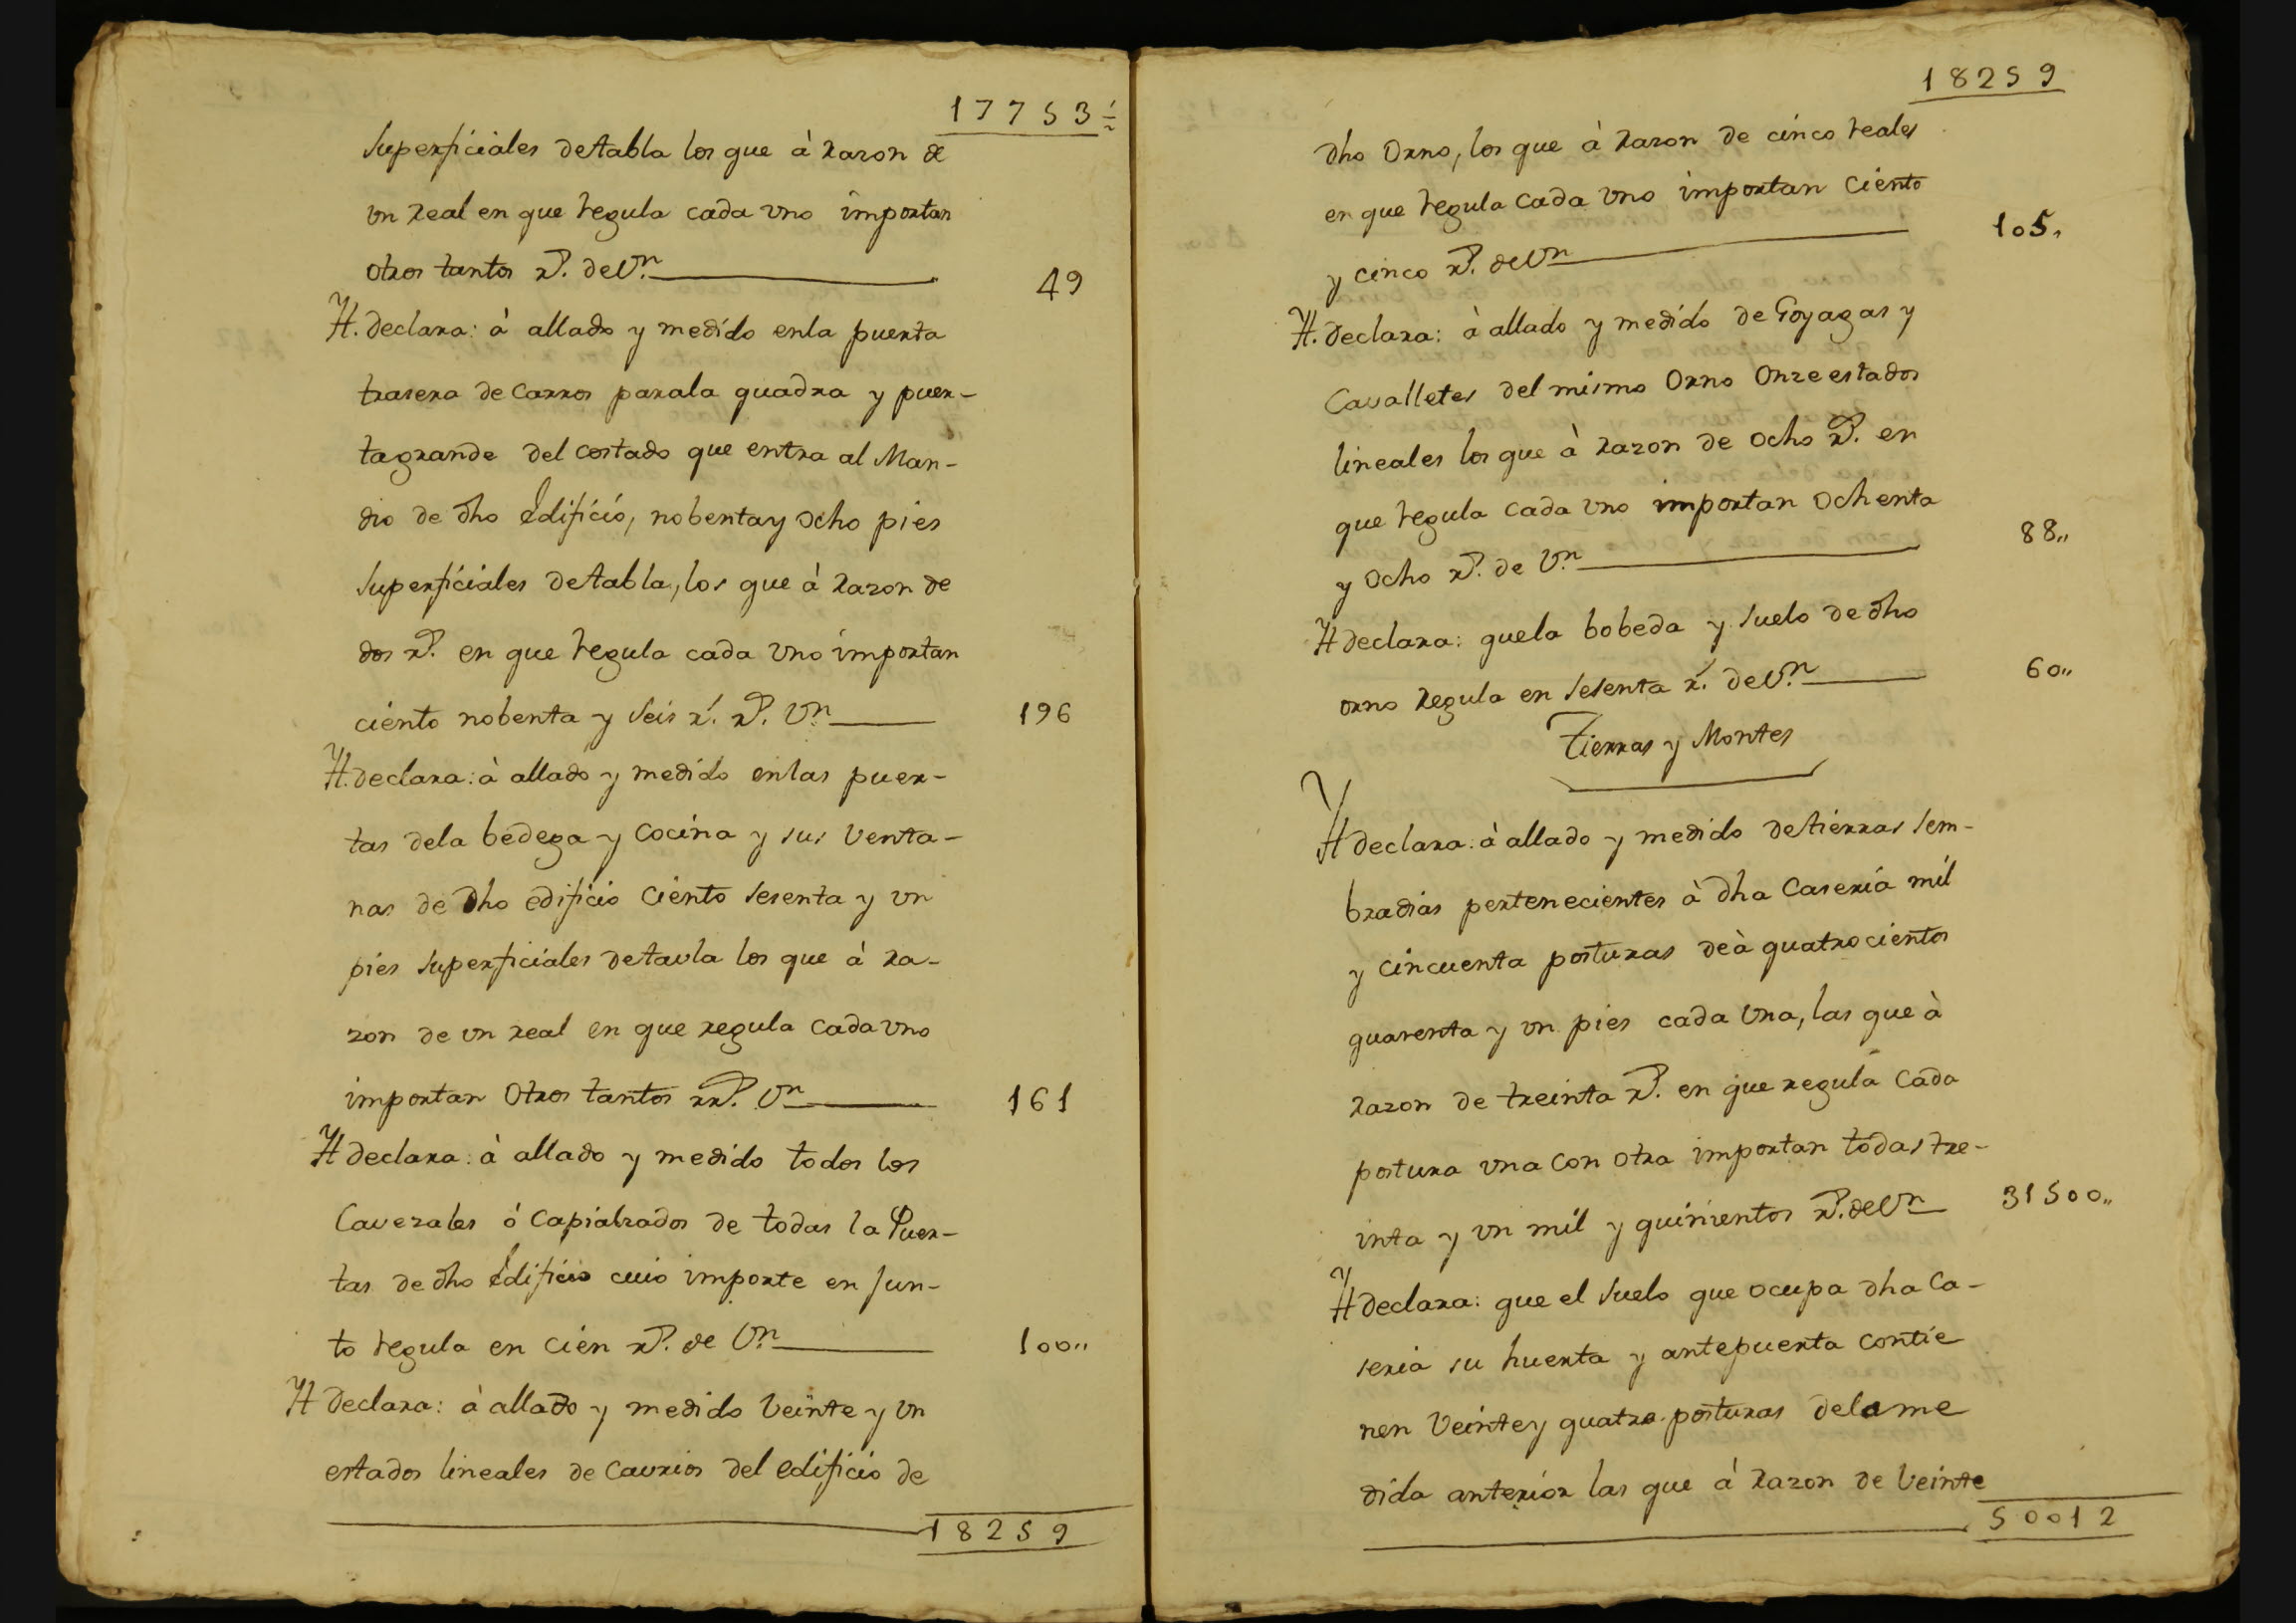 17753 ½
superficiales detabla los que à razon de
vn real en que regula cada vno importan
otros tantos rs. de Vn.
49
Yt. declara: à allado y medido enla puerta
trasera de carros parala quadra y puer-
tagrande del costado que entra al Man-
dio de dho Edificio, nobentay ocho pies
superficiales detabla, los que à razon de
dos rs. en que regula cada vno importan
ciento nobenta y seis r. rs. Vn
196
Yt. declara: à allado y medido enlas puer-
tas dela bedega y cocina y sus venta-
nas de dho edificio ciento sesenta y vn
pies superficiales detavla los que à ra-
zon de vn real en que regula cadavno
importan otros tantos rrs. Vn
161
Yt declara: à allado y medido todos los
Cavezales ó capialzados de todas la Puer-
tas de dho Edificio cuio importe en jun-
to regula en cien rs. de Vn.
100,,
Yt declara: à allado y medido veinte y vn
estados lineales de cavrios del edificio de
18259
18259
dho orno, los que à razon de cinco reales
en que regula cada vno importan ciento
y cinco rs. de Vn
105,
Yt. declara: à allado y medido de Goyagas y
Cavalletes del mismo orno onze estados
lineales los que à razon de ocho rs. en
que regula cada vno importan ochenta
y ocho rs. de Vn
88,,
Yt declara: quela bobeda y suelo de dho
orno regula en sesenta r. de Vn
60,,
Tierras y Montes
Yt declara: à allado y medido detierras sem-
bradias pertenecientes à dha Caseria mil
y cincuenta posturas deà quatrocientos
quarenta y vn pies cada vna, las que à
razon de treinta rs. en que regula cada
postura vna con otra importan todas tre-
inta y vn mil y quinientos rs. de Vn
31500,,
Yt declara: que el suelo que ocupa dha Ca-
seria su huerta y antepuerta contie
nen veintey quatro posturas dela me
dida anterior las que à razon de veinte
50012